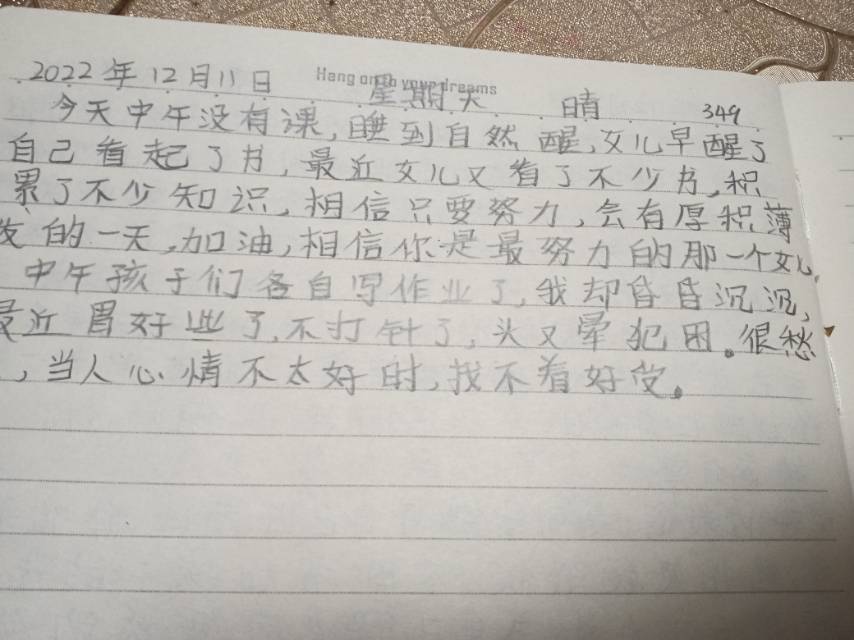 Hang on to your dreams
2022年12月11日 星期天 晴 349
今天中午没有课,睡到自然醒,女儿早醒了
自己看起了书,最近女儿又看了不少书,积
累了不少知识,相信只要努力,会有厚积薄
发的一天,加油,相信你是最努力的那一个女儿,
中午孩子们各自写作业了,我却昏昏沉沉,
最近胃好些了,不打针了,头又晕犯困。很愁
,当人心情不太好时,找不着好受。